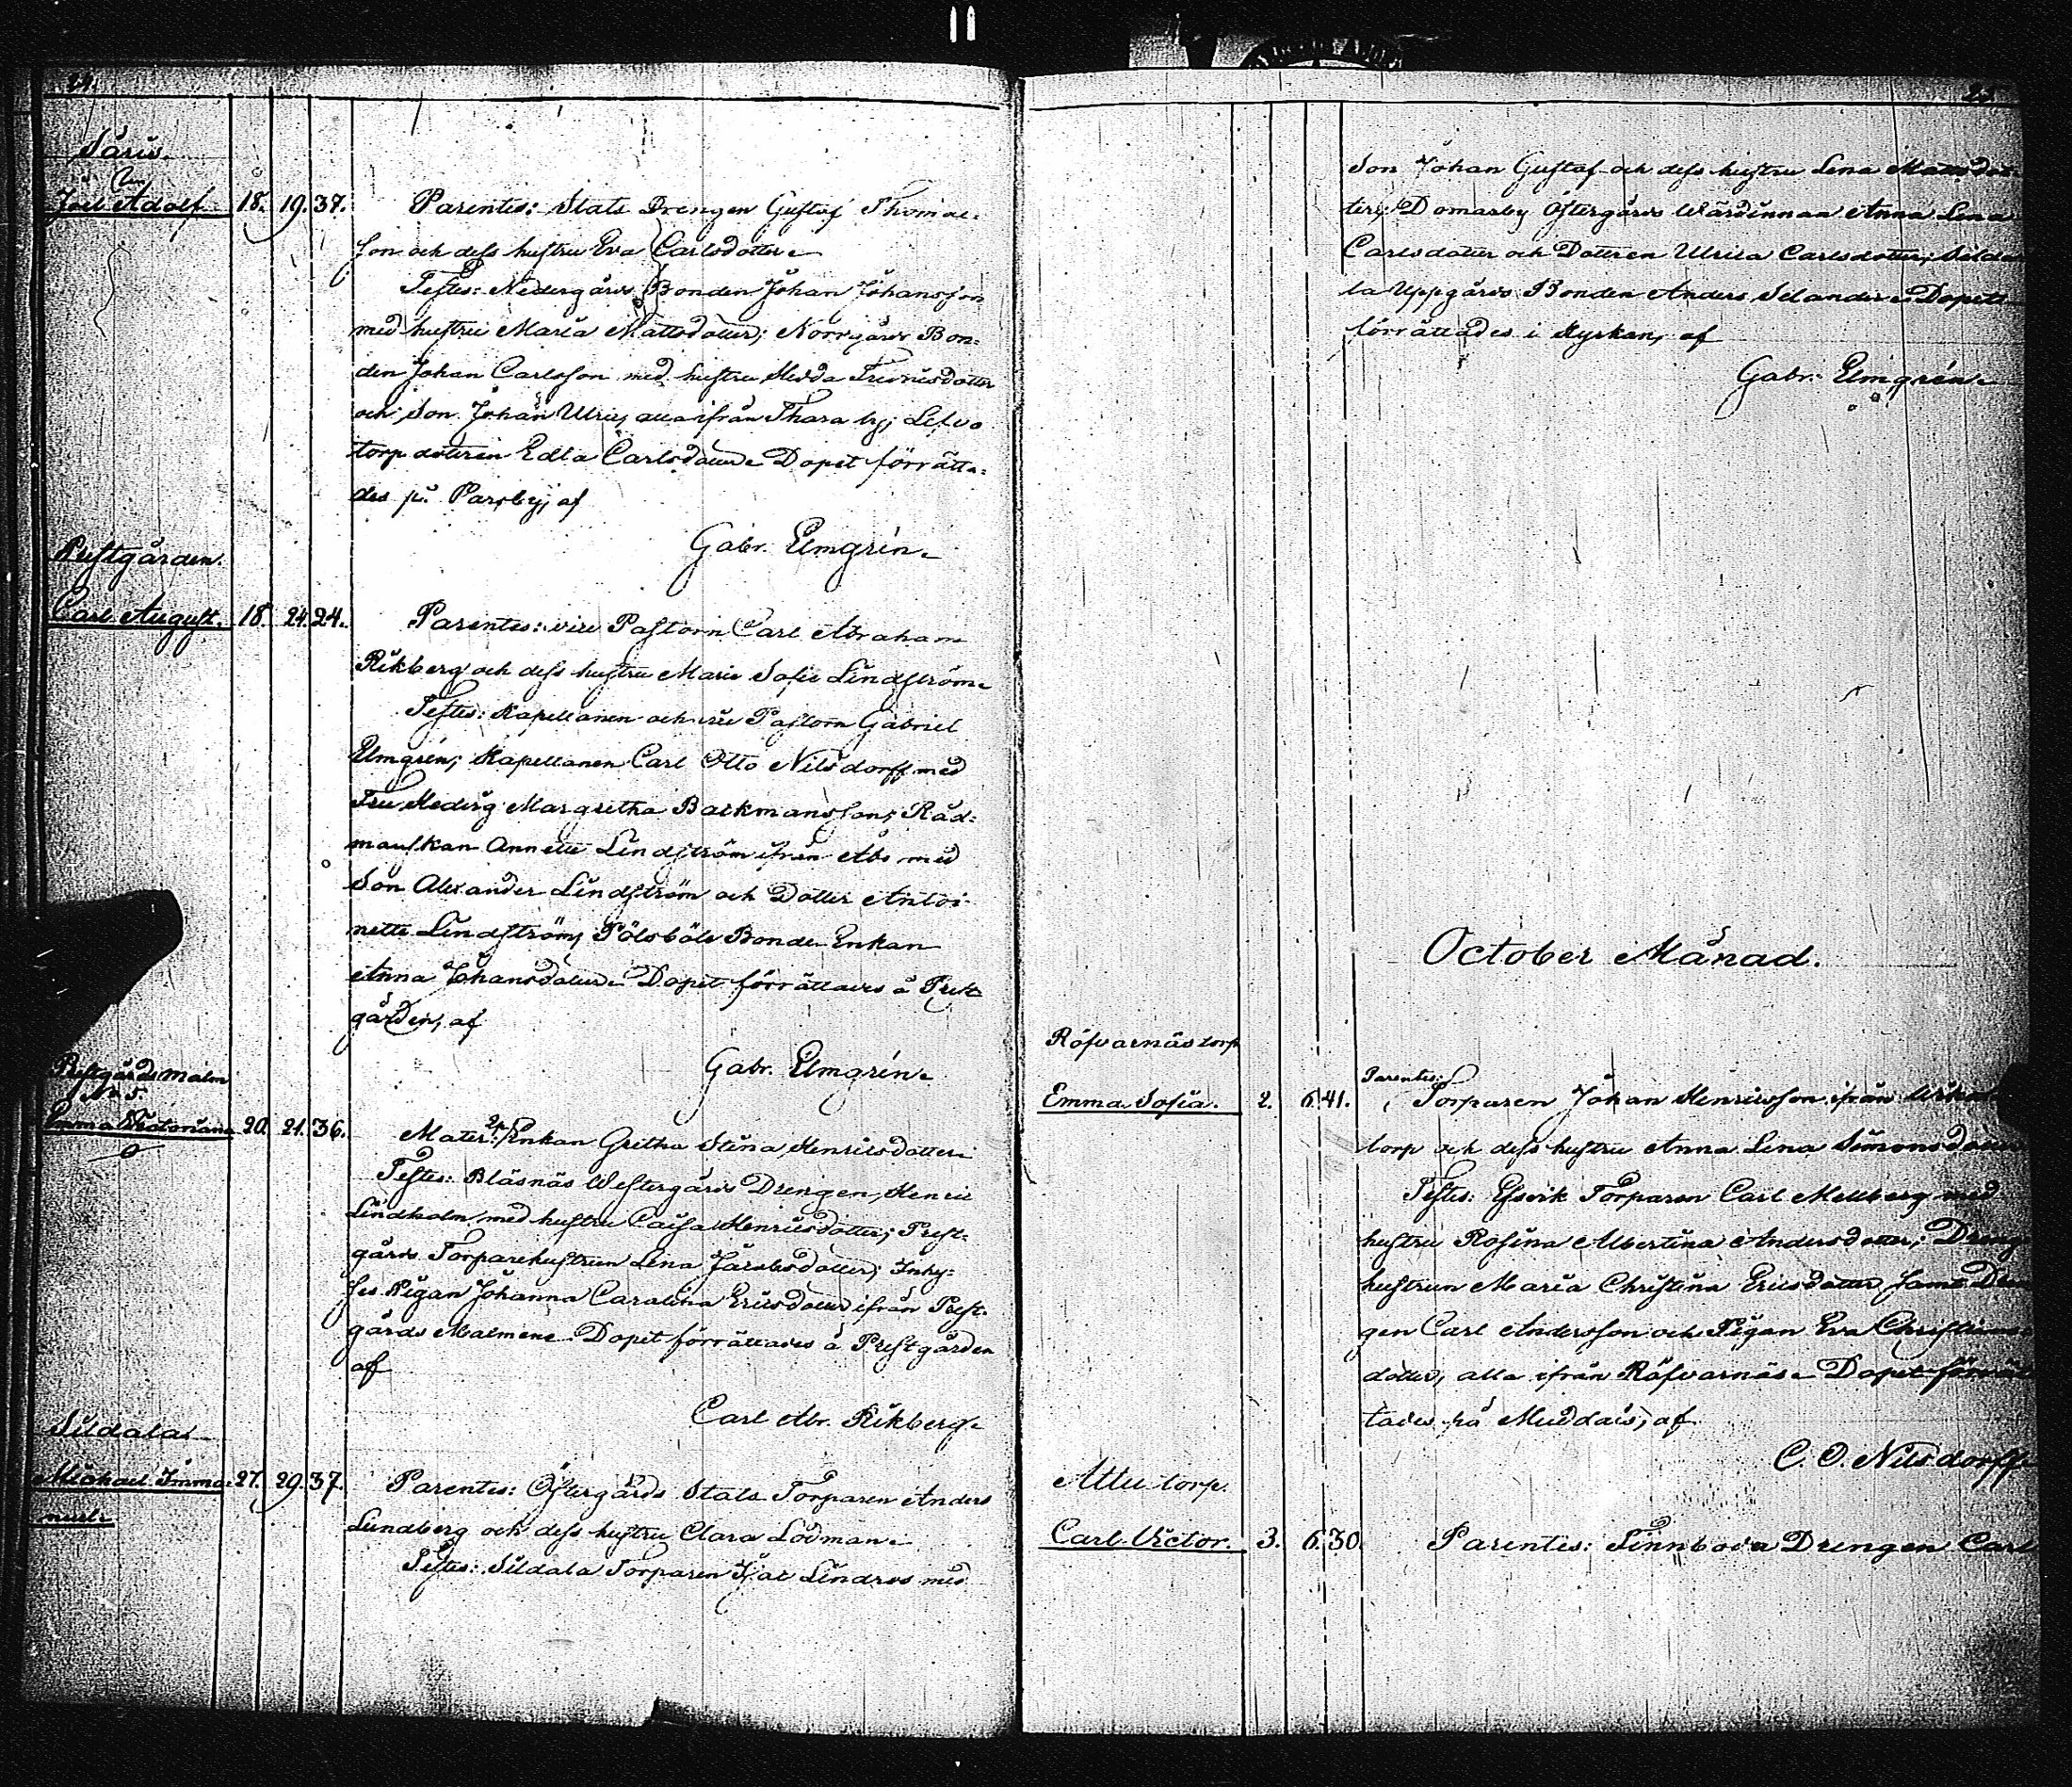 24.
Säris.
Joel Adolf. 18. 19. 37. Parentes: Stats Drengen Gustaf Thomas-
son och dess hustru Eva Carlsdotter.
Testes: Nedergårds Bonden Johan Johansson
med hustru Maria Mattsdotter; Norrgårds Bon-
den Johan Carlsson med hustru Hedda
och Son Johan Ulric, alla ifrån Thara by;
torp dotteren Edla Carlsdotter. Dopet förrätta-
des på Parsby, af
Gabr. Elmgrén.
Prestgården.
Carl August. 18. 24. 24. Parentes: vice Pastorn Carl Abraham
Rikberg och dess hustru Marie Sofie Lindström.
Testes: Kapellanen och vice Pastorn Gabriel
Elmgrén; Kapellanen Carl Otto Nilsdorff med
Fru Hedvig Margretha Backmansson; Råd-
manskan Annette Lindström ifrån Åbo med
Son Alexander Lindström och Dotter Antoi-
nette Lindström; Pölsböle Bonde Enkan
Anna Johansdotter. Dopet förrättades å Prest-
gården, af
Gabr. Elmgrén.
Prestgårdsmalm
No 5.
Emma 20. 21. 36. Mater: Enkan Gretha Stina Henricsdotter.
Testes: Bläsnäs Westergårds Drengen, Henric
Lindholm med hustru Caisa Henricsdotter; Prest-
gårds Torparehustrun Lena Jacobsdotter; Inhy-
ses Pigan Johanna Carolina Ericsdotter ifrån Prest-
gårds Malmen. Dopet förrättades å Prestgården
af
Carl Abr. Rikberg.
Sildala
Michael Imma- 27. 29. 37. Parentes: Östergårds Stats Torparen Anders
nuel. Lundberg och dess hustru Clara Lodman.
Testes: Sildala Torparen Isac Lindros med
25.
Son Johan Gustaf och dess hustru Lena Mattsdot-
ter; Domarby Östergårds Wärdinnan Anna Lena
Carlsdotter och Dotteren Ulrica Carlsdotter; Silda-
la Uppgårds Bonden Anders Selander. Dopet
förrättades i Kyrkan, af
Gabr. Elmgrén.
October Månad.
Röfvarnäs torp
Emma Sofia. 2. 6. 41. Parentes: Torparen Johan Henricsson ifrån
torp och dess hustru Anna Lena Simonsdotter
Testes: Essvik Torparen Carl Mellberg med
hustru Rosina Albertina Andersdotter; Dreng
hustrun Maria Christina Ericsdotter, samt Dren-
gen Carl Andersson och Pigan Eva Christians-
dotter, alla ifrån Röfvarnäs. Dopet förrät-
tades på Muddais, af
C. O. Nilsdorff.
Attu torp.
Carl Victor. 3. 6. 30. Parentes: Finnboda Drengen Carl